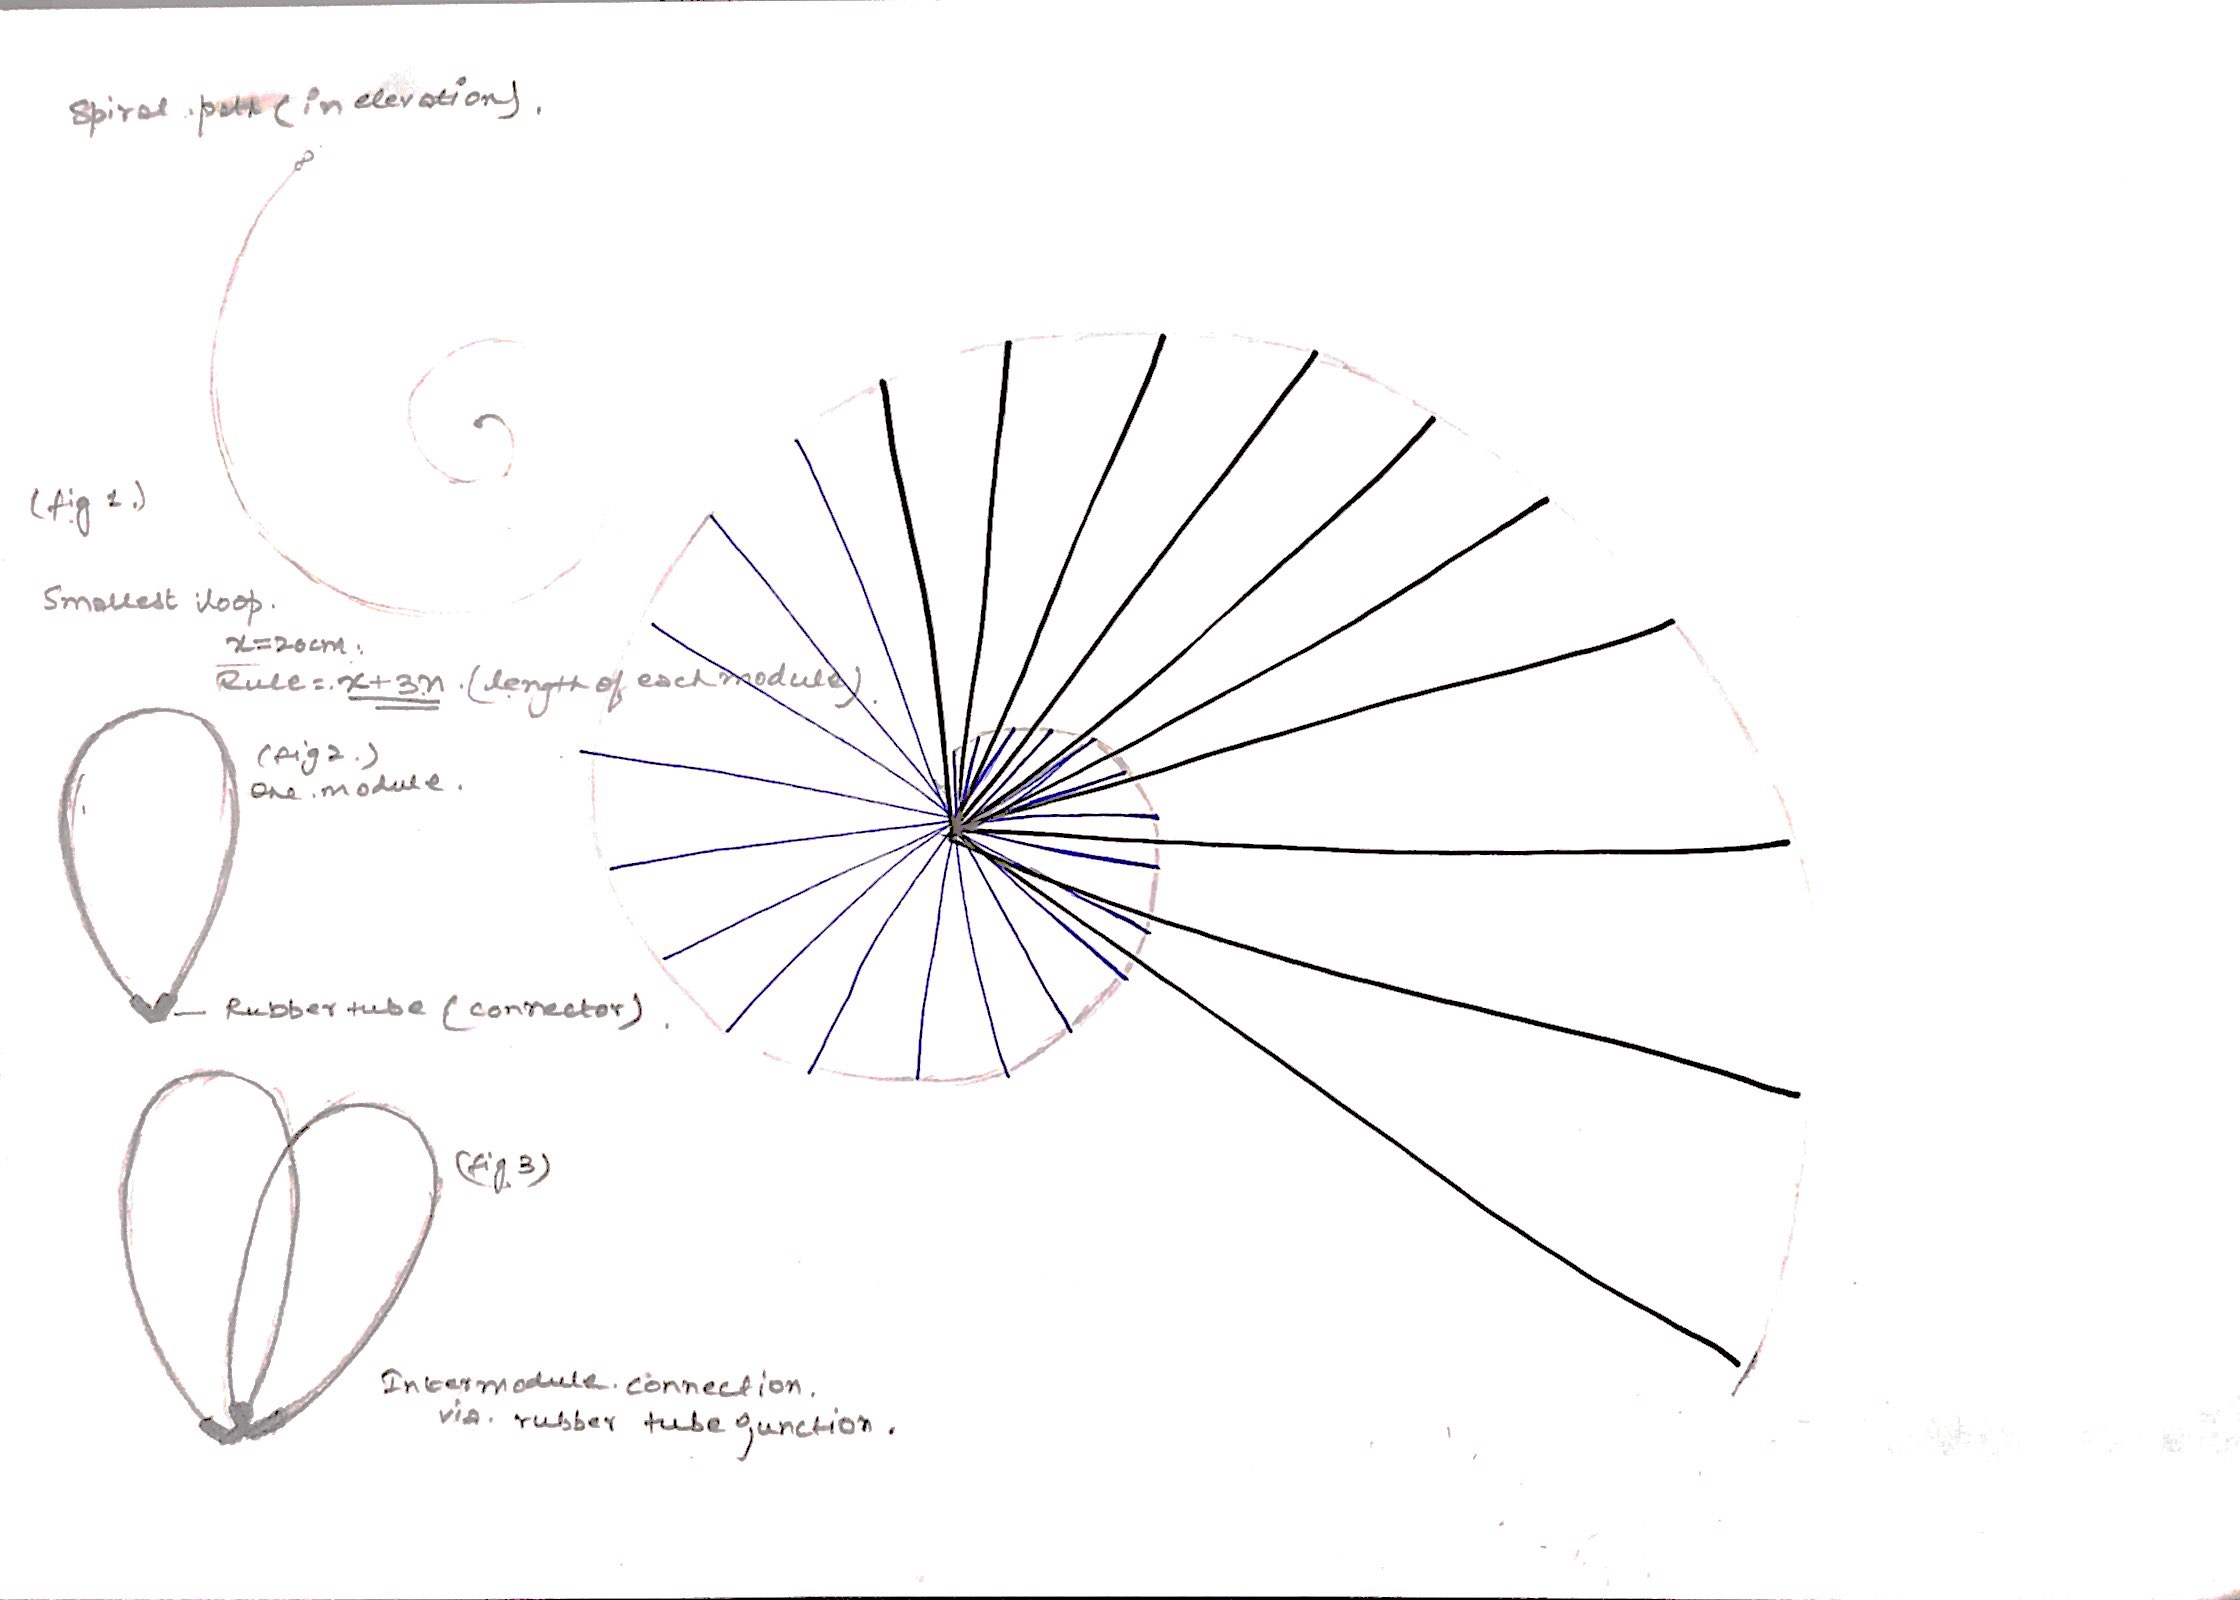 Spiral path (in elevation).
(fig 1.)
Smallest loop.
x=20cm.
Rule = x+3n. (length of each module).
(fig 2.)
One module.
Rubber tube (connector).
(fig 3)
Intermodule connection.
via. rubber tube junction.